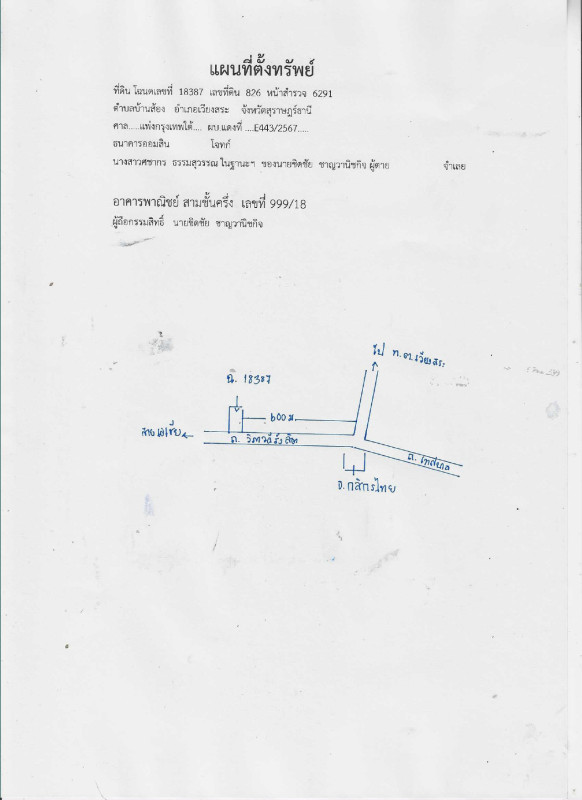 แผนที่ตั้งทรัพย์
ที่ดิน โฉนดเลขที่ 18387 เลขที่ดิน 826 หน้าสำรวจ 6291
ตำบลบ้านส้อง อำเภอเวียงสระ จังหวัดสุราษฎร์ธานี
ศาล.....แพ่งกรุงเทพใต้.... ผบ.แดงที่ ....E443/2567.....
ธนาคารออมสิน โจทก์
นางสาวศชากร ธรรมสุวรรณ ในฐานะฯ ของนายชิดชัย ชาญวานิชกิจ ผู้ตาย จำเลย
อาคารพาณิชย์ สามชั้นครึ่ง เลขที่ 999/18
ผู้ถือกรรมสิทธิ์ นายชิดชัย ชาญวานิชกิจ
ไป ท.ต.เวียงสระ
ฉ. 18387
600 ม.
สายเอเชีย
ถ.
ถ.
ธ.กสิกรไทย